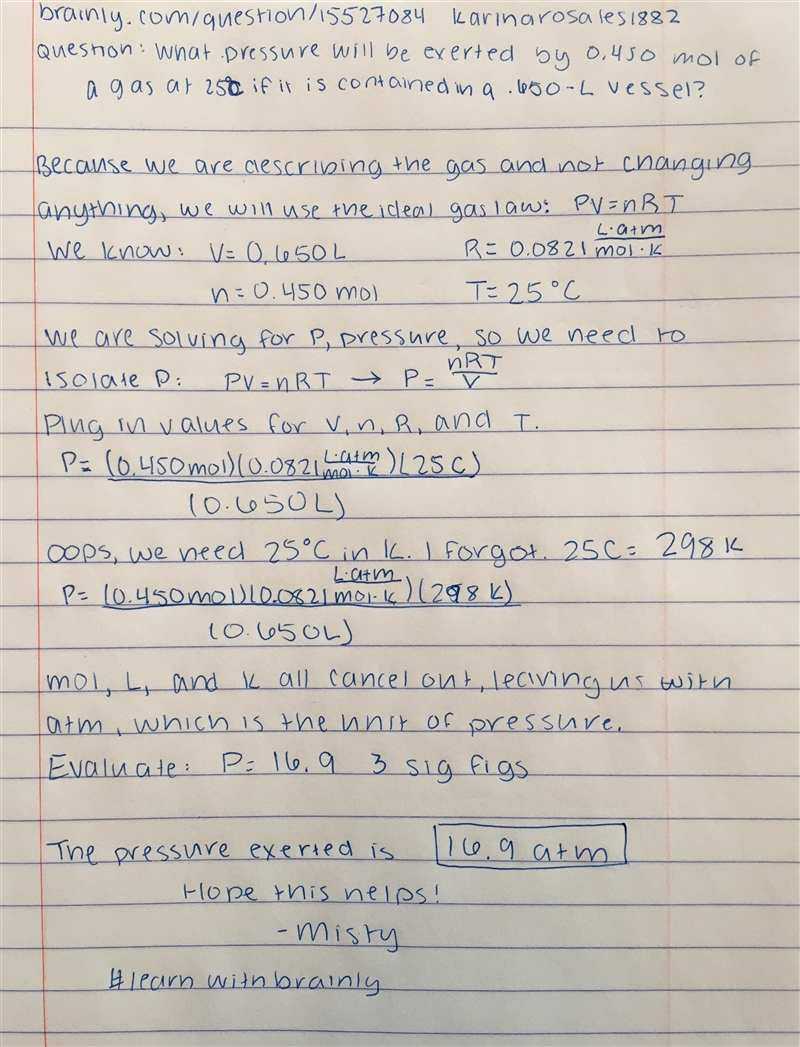 brainly.com/question/15527084 karinarosales1882
Question: What pressure will be exerted by 0.450 mol of
a gas at 25°C if it is contained in a .650-L vessel?
Because we are describing the gas and not changing
anything, we will use the ideal gas law: PV=nRT
We know: V=0.650L R=0.0821 L·atm/mol·K
n=0.450 mol T=25°C
We are solving for P, pressure, so we need to
isolate P: PV=nRT → P= nRT/V
Plug in values for V, n, R, and T.
P= (0.450mol)(0.0821 L·atm/mol·K)(25C)
(0.650L)
Oops, we need 25°C in K. I forgot. 25C= 298 K
P= (0.450mol)(0.0821 L·atm/mol·K)(298 K)
(0.650L)
mol, L, and K all cancel out, leaving us with
atm, which is the unit of pressure.
Evaluate: P= 16.9 3 sig figs
The pressure exerted is 16.9 atm
Hope this helps!
-Misty
#learnwithbrainly